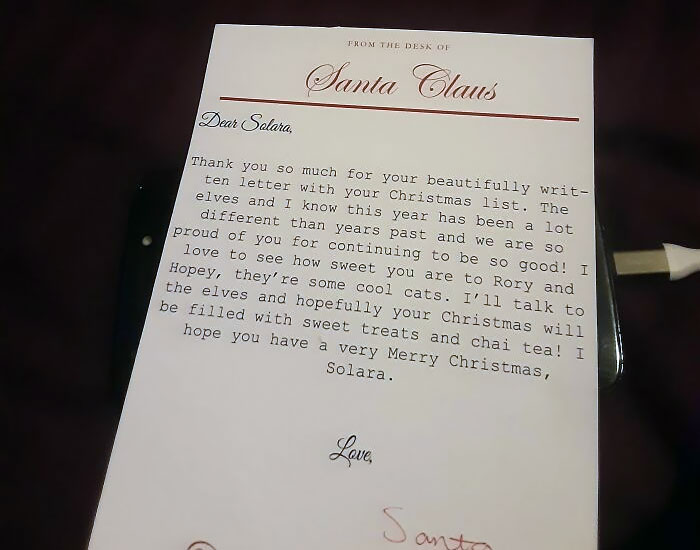 FROM THE DESK OF
Santa Claus
Dear Solara,
Thank you so much for your beautifully writ-
ten letter with your Christmas list. The
elves and I know this year has been a lot
different than years past and we are so
proud of you for continuing to be so good! I
love to see how sweet you are to Rory and
Hopey, they're some cool cats. I'll talk to
the elves and hopefully your Christmas will
be filled with sweet treats and chai tea! I
hope you have a very Merry Christmas,
Solara.
Love,
Santa